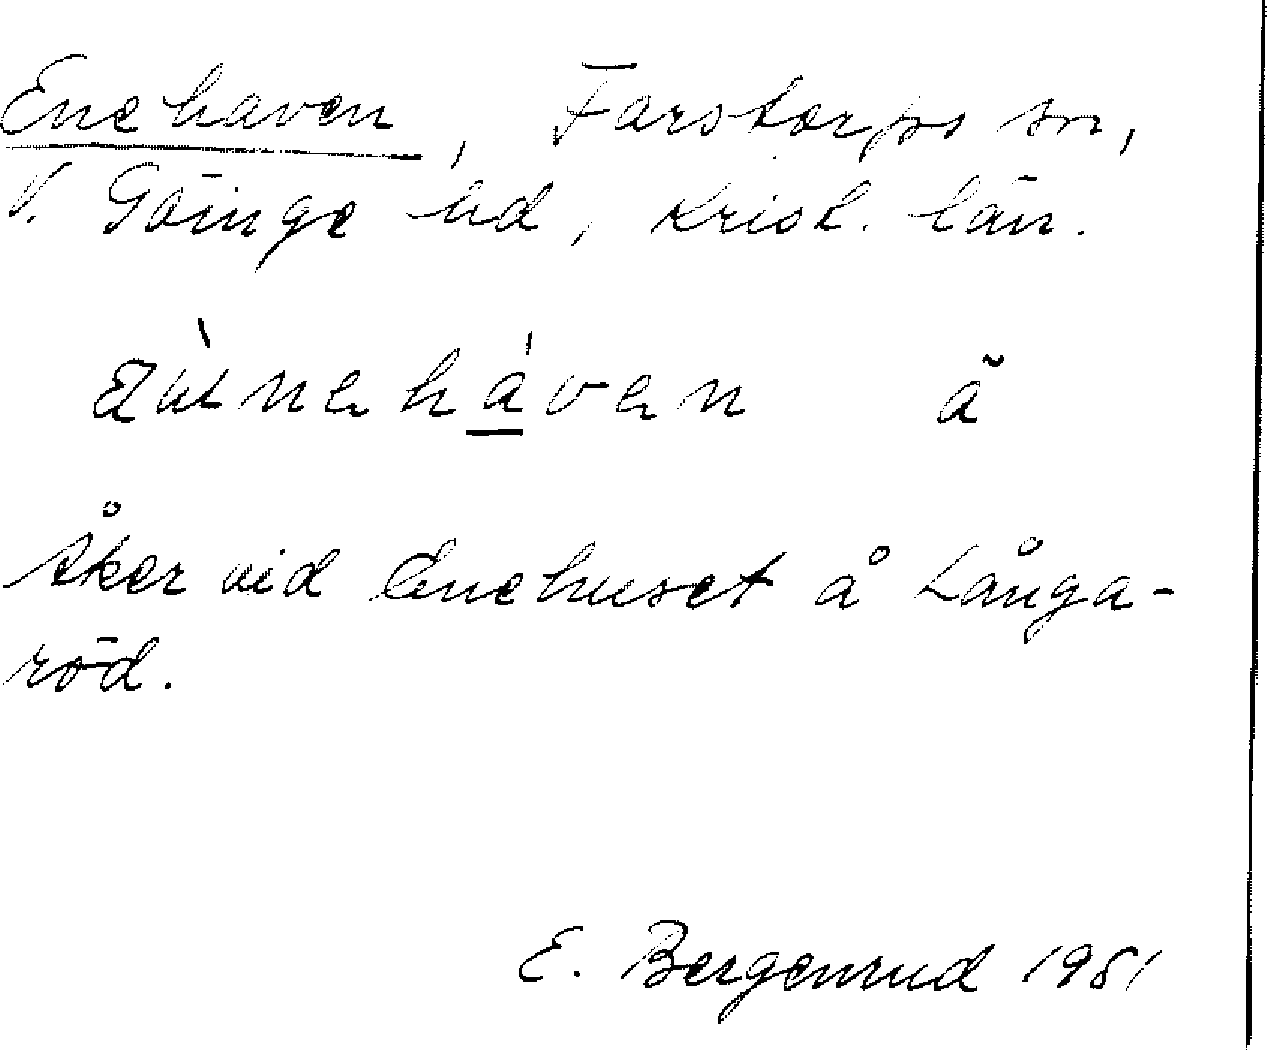 Enehaven, Farstorps sn,
V. Göinge hd, Krist. län.
æ̀inehá̱ven ã
Åker vid Enehuset å Långa-
röd.
E. Bergenrud 1981